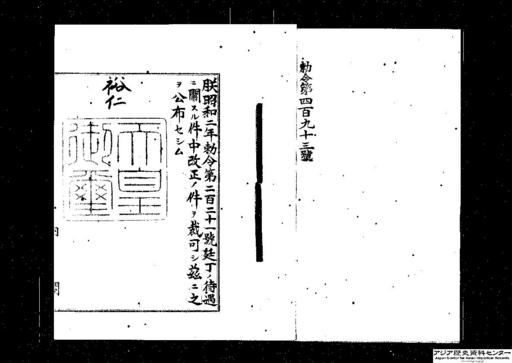 勅令第四百九十三號
朕昭和二年勅令第二百二十一號廷丁ノ待遇
ニ關スル件中改正ノ件ヲ裁可シ茲ニ之
ヲ公布セシム
裕仁
天皇御璽
内閣
アジア歴史資料センター
Japan Center for Asian Historical Records